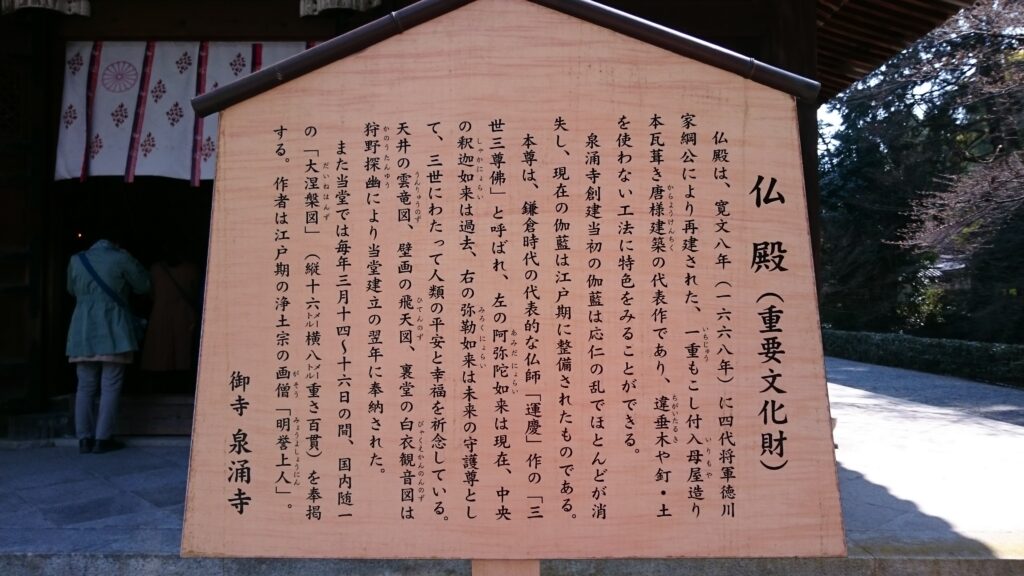 仏殿（重要文化財）
仏殿は、寛文八年（一六六八年）に四代将軍徳川
家綱公により再建された、一重もこし付入母屋造り
本瓦葺き唐様建築の代表作であり、違垂木や釘・土
を使わない工法に特色をみることができる。
泉涌寺創建当初の伽藍は応仁の乱でほとんどが消
失し、現在の伽藍は江戸期に整備されたものである。
本尊は、鎌倉時代の代表的な仏師「運慶」作の「三
世三尊佛」と呼ばれ、左の阿弥陀如来は現在、中央
の釈迦如来は過去、右の弥勒如来は未来の守護尊とし
て、三世にわたって人類の平安と幸福を祈念している。
天井の雲竜図、壁画の飛天図、裏堂の白衣観音図は
狩野探幽により当堂建立の翌年に奉納された。
また当堂では毎年三月十四～十六日の間、国内随一
の「大涅槃図」（縦十六メートル横八メートル重さ百貫）を奉掲
する。作者は江戸期の浄土宗の画僧「明誉上人」。
御寺 泉涌寺